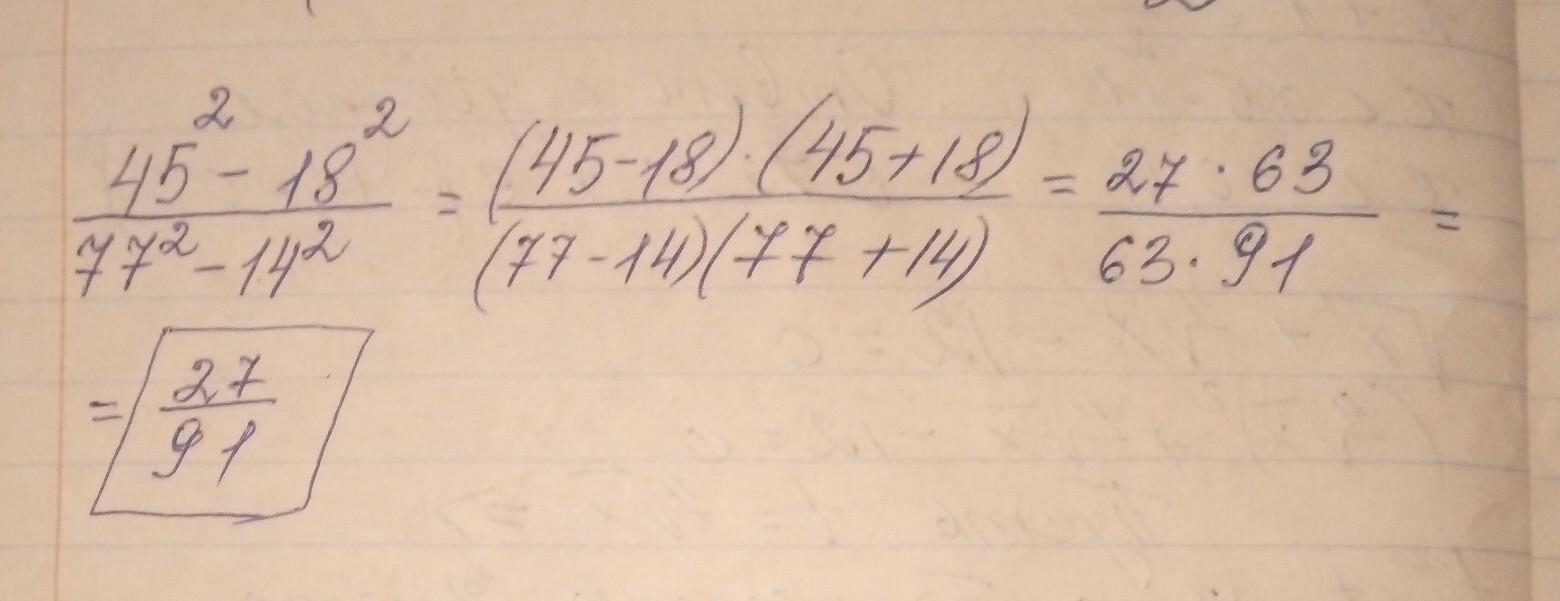 (45² - 18²)/(77² - 14²) = ((45-18)·(45+18))/((77-14)(77+14)) = (27·63)/(63·91) =
= 27/91